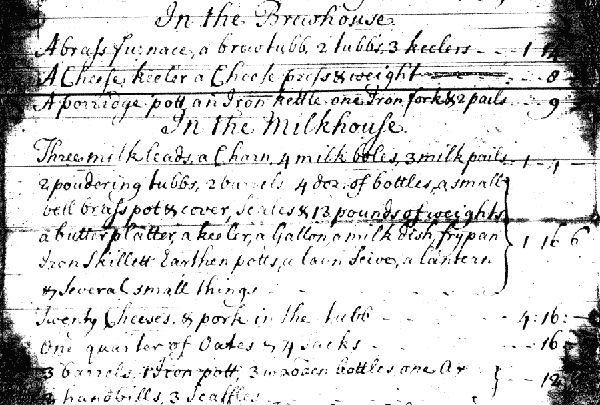 In the Brewhouse
A brass furnace, a brewtubb, 2 tubbs, 3 keelers - - 1 14
A Cheese keeler a Cheese press & weight - - 8
A porridge pott, an Iron kettle, one Iron fork & 2 pails - 9
In the Milkhouse
Three milk leads, a Charn, 4 milk boles, 3 milk pails - 1 - 1 -
2 poudering tubbs, 2 barrels 4 doz. of bottles, a small
bell brass pot & cover, Scales & 13 pounds of weights
a butter platter, a keeler, a Gallon, a milk dish, frypan 1 16 6
Iron Skillett Earthen potts, a lawn Seive, a lantern
& several small things
Twenty Cheeses, & pork in the tubb - 4: 16: -
One quarter of Oates & 4 Sacks - - 16 -
3 barrels, 1 Iron pott, 3 wooden bottles, one - - 12
3 handbills, 3